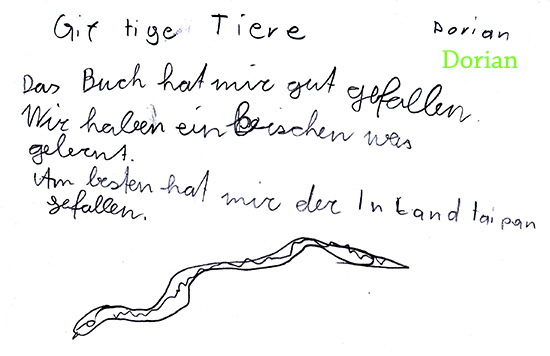 Giftige Tiere Dorian
Dorian
Das Buch hat mir gut gefallen.
Wir haben ein bischen was
gelernt.
Am besten hat mir der Inlandtaipan
gefallen.